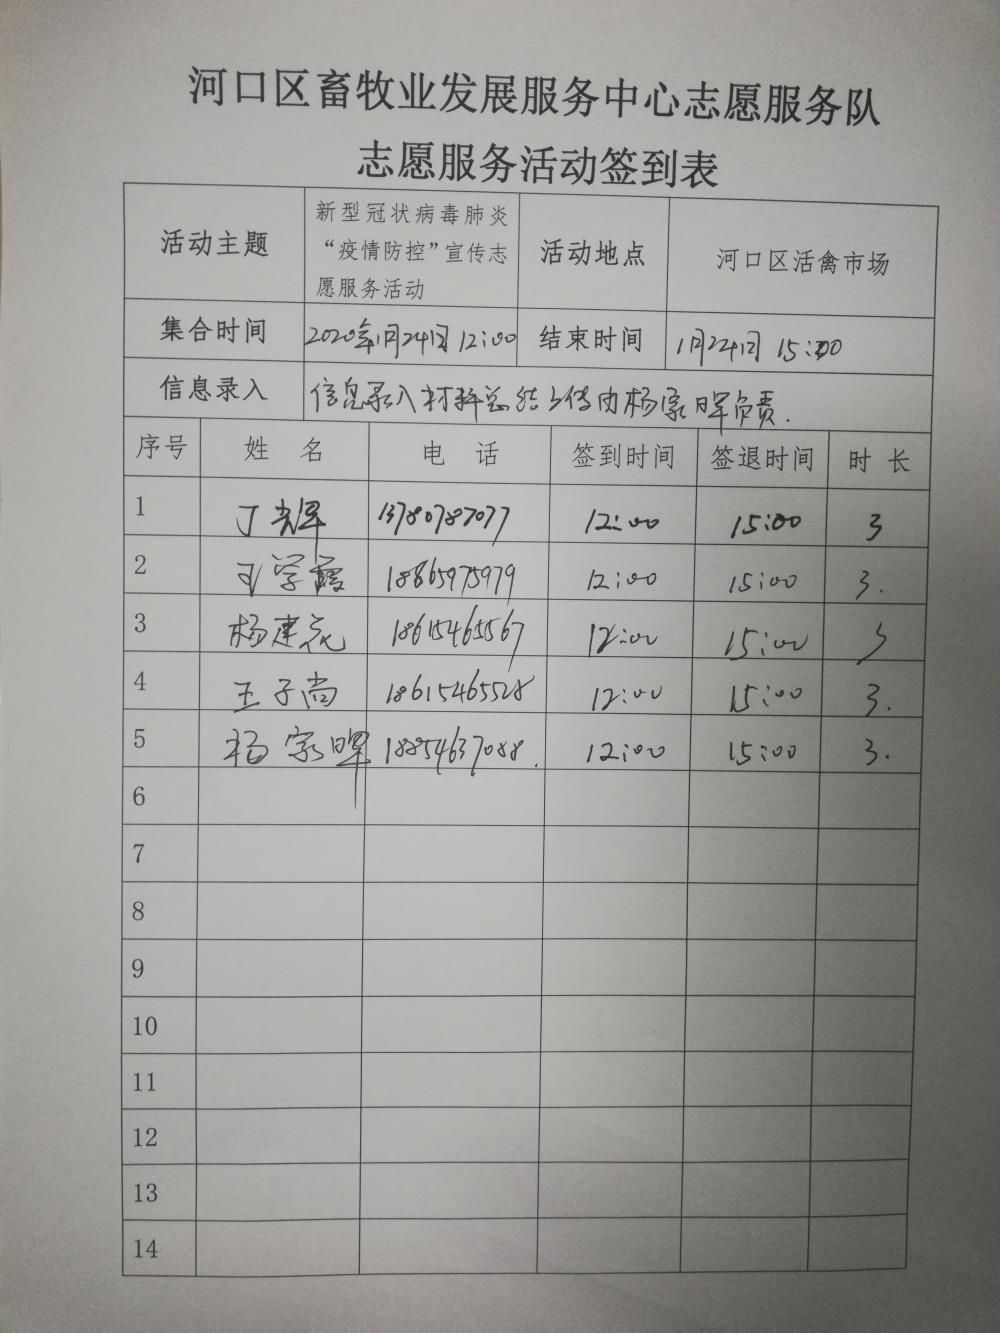 河口区畜牧业发展服务中心志愿服务队
志愿服务活动签到表
活动主题 新型冠状病毒肺炎“疫情防控”宣传志愿服务活动 活动地点 河口区活禽市场
集合时间 2020年1月24日 12:00 结束时间 1月24日 15:00
信息录入 信息录入材料总结上传由杨家晖负责.
序号 姓 名 电 话 签到时间 签退时间 时 长
1 丁光辉 13780787077 12:00 15:00 3
2 王学霞 18865975979 12:00 15:00 3.
3 杨建 18615465567 12:00 15:00 3
4 王子尚 18615465528 12:00 15:00 3.
5 杨家晖 18854637088. 12:00 15:00 3.
6
7
8
9
10
11
12
13
14